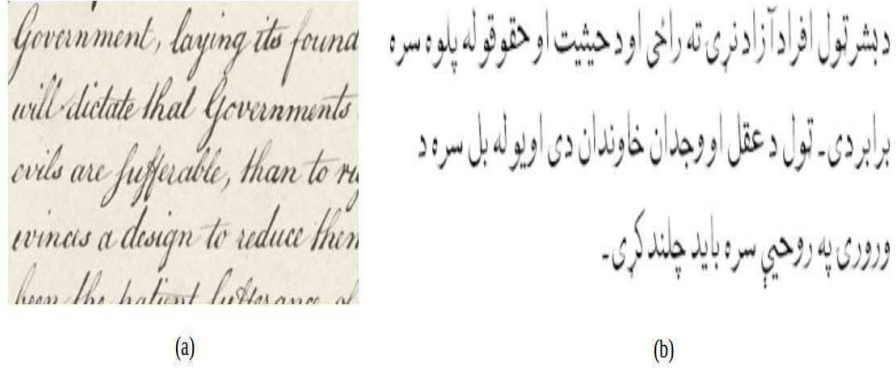 Government, laying its found
will dictate that Governments
evils are sufferable, than to
evinces a design to reduce them
been the patient sufferance of
(a)
د بشر ټول افراد آزاد نړۍ ته راځي او د حیثیت او حقوقو له پلوه سره
برابر دی۔ ټول د عقل او وجدان خاوندان دی او یو له بل سره د
ورورۍ په روحیې سره باید چلند کړی۔
(b)